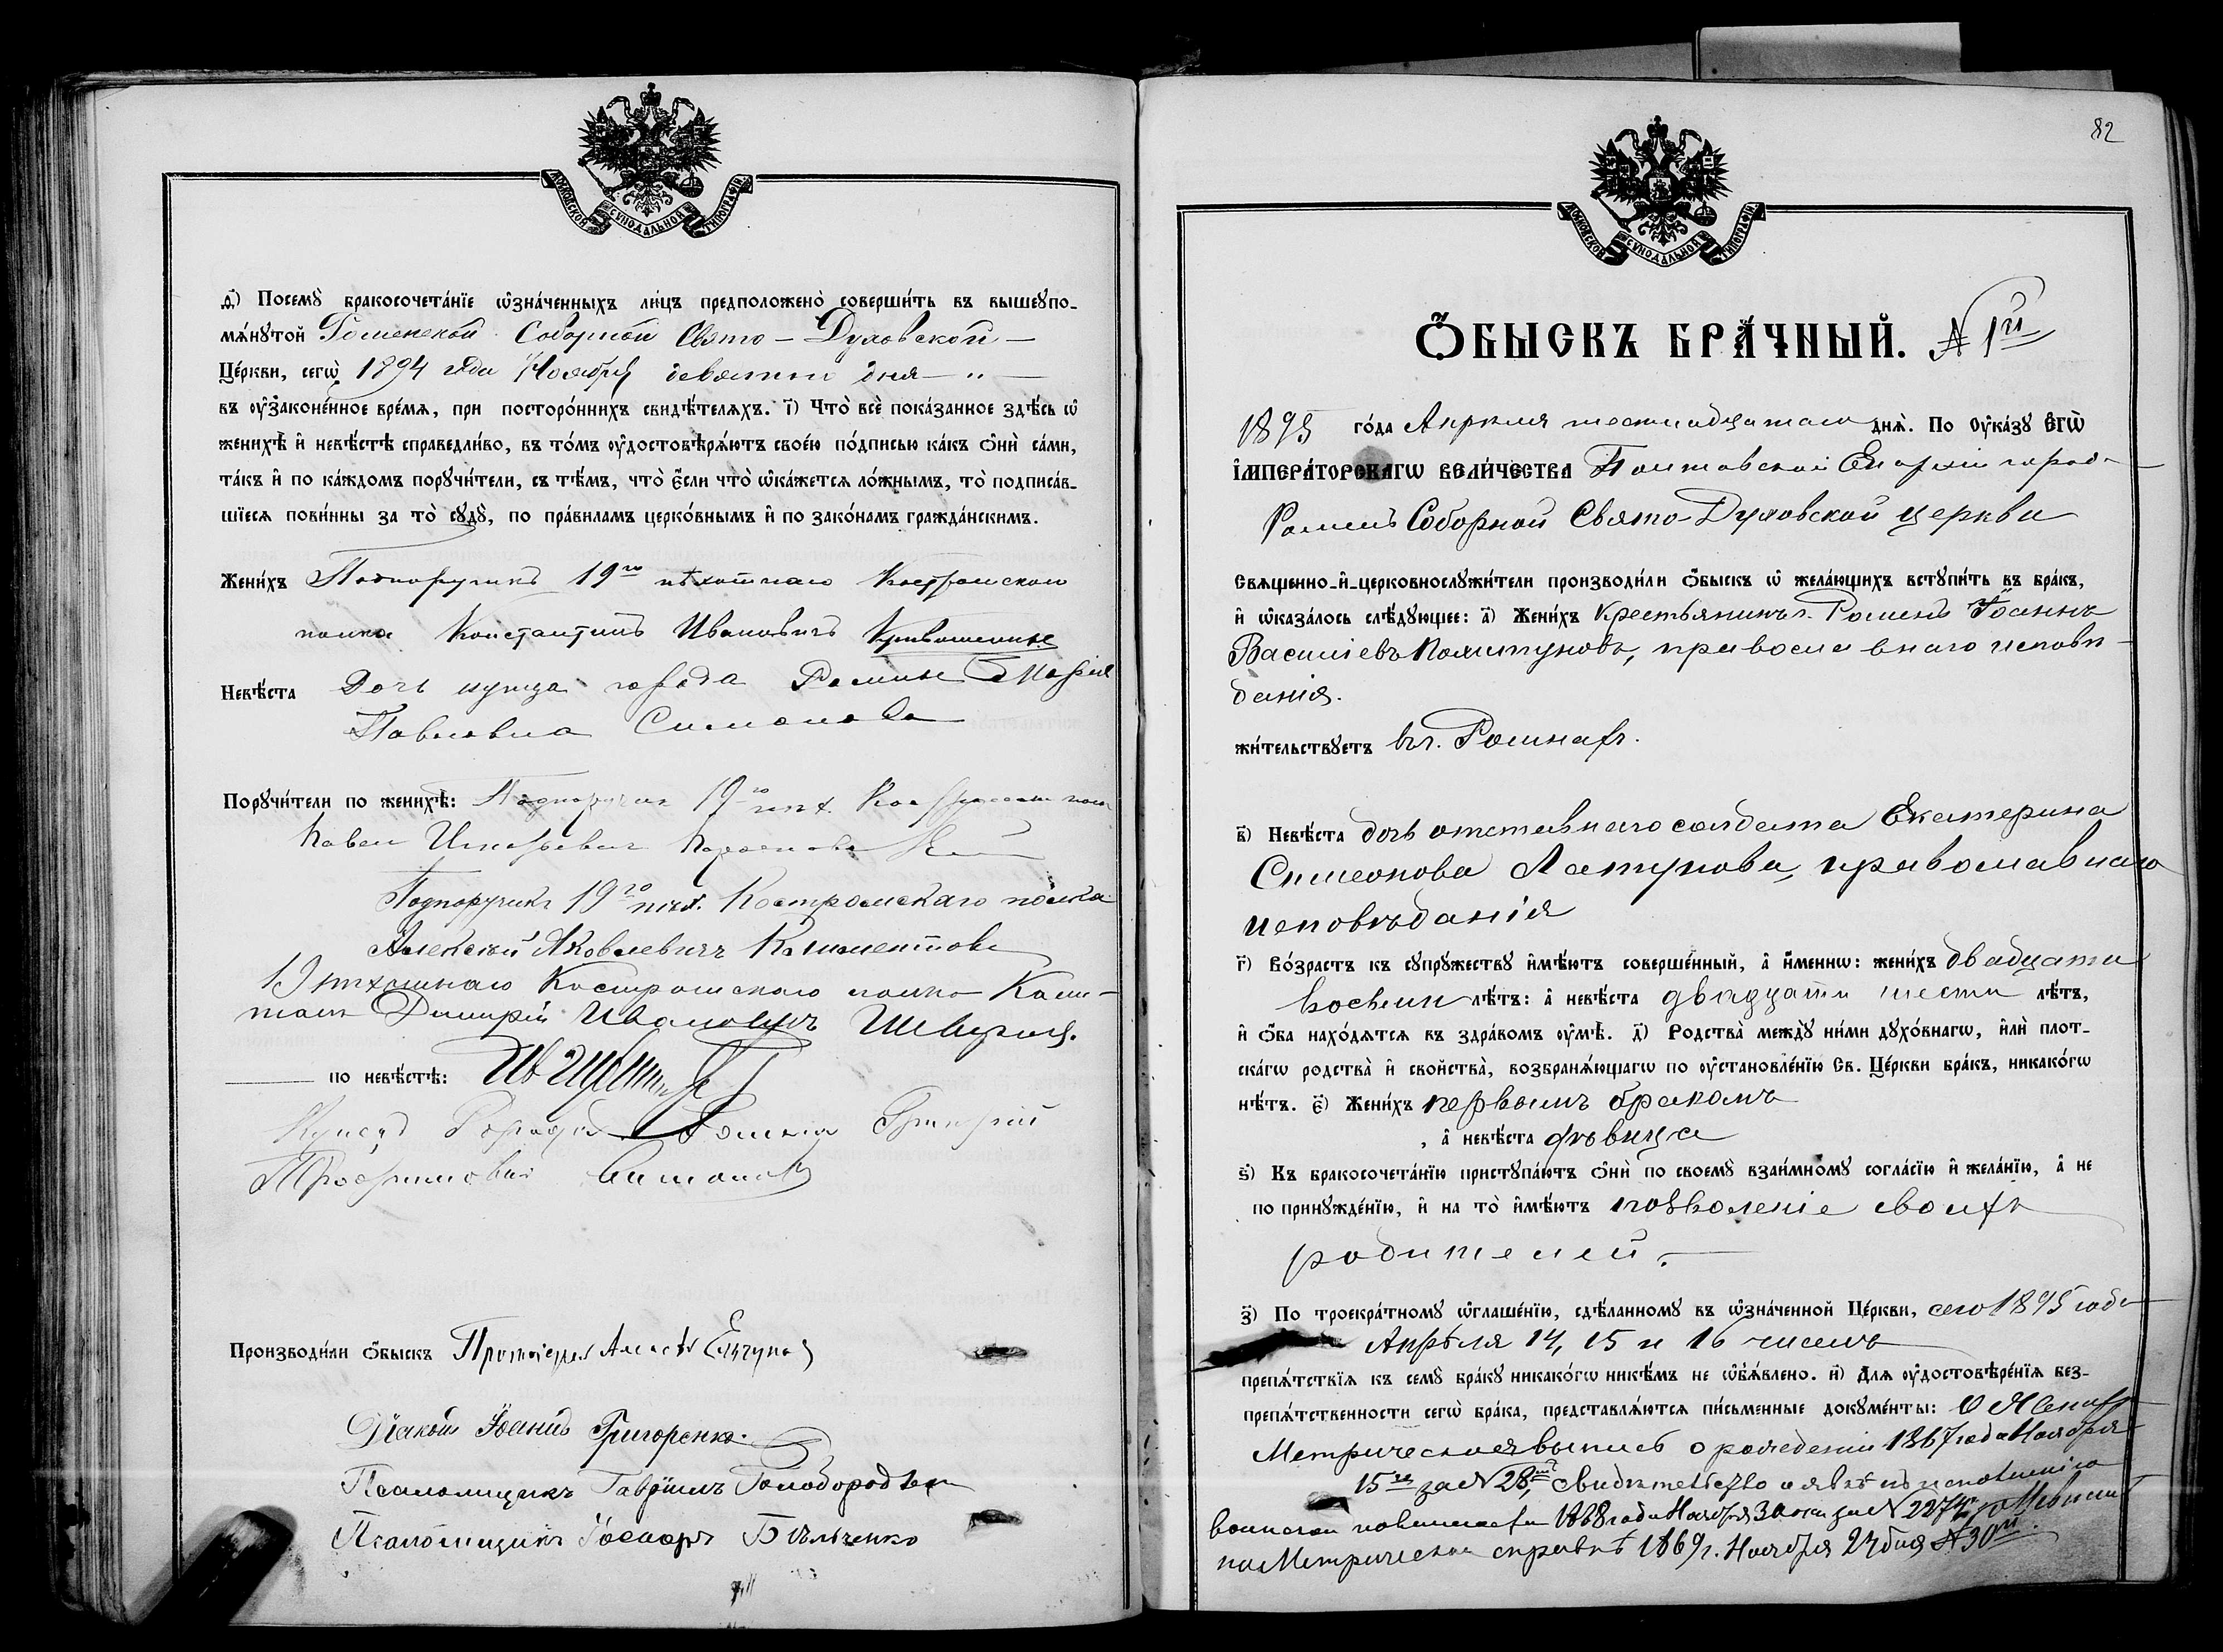 МОСКОВСКОЙ СѴНОДАЛЬНОЙ ТИПОГРАФІИ.
д҃і) Посемꙋ̀ бракосочета́нїе ѡ҆зна́ченныхъ ли́цъ предположено̀ соверши́ть въ вышеꙋпо-
мѧ́нꙋтой Роменской Соборной Свято-Духовской
Це́ркви, сегѡ̀ 1894 года Ноября девятаго дня
въ ᲂу҆зако́ненное вре́мѧ, при посторо́ннихъ свидѣ́телѧхъ. і҃) Что̀ всѐ пока́занное здѣ́сь ѡ҆
женихѣ̀ и҆ невѣ́стѣ справедли́во, въ то́мъ ᲂу҆достовѣрѧ́ютъ свое́ю по́дписью ка́къ ѻ҆нѝ са́ми,
та́къ и҆ по ка́ждомъ порꙋчи́тели, съ тѣ́мъ, что̀ є҆́сли что̀ ѡ҆ка́жетсѧ ло́жнымъ, то̀ подписа́в-
шїесѧ пови́нны за то̀ сꙋдꙋ̀, по пра́виламъ церко́внымъ и҆ по зако́намъ гражда́нскимъ.
Жени́хъ Подпоручикъ 19го пѣхотнаго Костромского
полка Константинъ Ивановичъ
Невѣ́ста Дочь купца города Ромны Марія
Павловна Симонова
Порꙋчи́тели по женихѣ̀: Подпоручик 19го пѣх.
Павел
Подпоручикъ 19го пѣх. Костромскаго полка
Алексѣй Яковлевичъ
19 пѣхотнаго Костромского полка Капи-
танъ Димитрій Ивановичъ
по невѣ́стѣ:
Купецъ Города Ромны
Симоновъ
Производи́ли ѻ҆́быскъ Протоіерей
Діаконъ Іоаннъ Григоренко.
Псаломщикъ Гавріилъ Голобородько
Псаломщикъ Бѣльченко
82
МОСКОВСКОЙ СѴНОДАЛЬНОЙ ТИПОГРАФІИ.
Ѻ҆́БЫСКЪ БРА́ЧНЫЙ. № 1й
1895 го́да Апрѣля шестнадцатаго днѧ̀. По ᲂу҆ка́зꙋ Є҆ГѠ̀
І҆МПЕРА́ТОРСКАГѠ ВЕЛИ́ЧЕСТВА Полтавской Епархіи города
Роменъ Соборной Свято-Духовской церкви
Свѧщенно-и҆-церковнослꙋжи́тели производи́ли ѻ҆́быскъ ѡ҆ жела́ющихъ встꙋпи́ть въ бра́къ,
и҆ ѡ҆каза́лось слѣ́дꙋющее: а҃) Жени́хъ Крестьянинъ г. Роменъ Іоаннъ
Василіевъ православнаго исповѣ-
данія.
жи́тельствꙋетъ въ г. Ромнахъ.
в҃) Невѣ́ста дочь отставнаго солдата Екатерина
Симеонова православнаго
исповѣданія
г҃) Во́зрастъ къ сꙋпрꙋ́жествꙋ и҆мѣ́ютъ соверше́нный, а҆ и҆́меннѡ: жени́хъ двадцати
восьми лѣ́тъ: а҆ невѣ́ста двадцати шести лѣ́тъ,
и҆ ѻ҆́ба нахо́дѧтсѧ въ здра́вомъ ᲂу҆мѣ̀. д҃) Родства̀ междꙋ̀ ни́ми дꙋхо́внагѡ, и҆лѝ плот-
ска́гѡ родства̀ и҆ сво́йства̀, возбранѧ́ющагѡ по ᲂу҆становле́нїю Св. Це́ркви бра́къ, никако́гѡ
нѣ́тъ. є҃) Жени́хъ первымъ бракомъ
, а҆ невѣ́ста дѣвица
ѕ҃) Къ бракосочета́нїю пристꙋпа́ютъ ѻ҆нѝ по своемꙋ̀ взаи́мномꙋ согла́сїю и҆ жела́нїю, а҆ не
по принꙋжде́нїю, и҆ на то̀ и҆мѣ́ютъ позволеніе своихъ
родителей.
з҃) По троекра́тномꙋ ѡ҆глаше́нїю, сдѣ́ланномꙋ въ ѡ҆зна́ченной Це́ркви, сего 1895 года
Апрѣля 14, 15 и 16 чиселъ
препѧ́тствїѧ къ семꙋ̀ бра́кꙋ никако́гѡ никѣ́мъ не ѡ҆б̾ѧ́влено. и҃) Длѧ ᲂу҆достовѣре́нїѧ без-
препѧ́тственности сегѡ̀ бра́ка, представлѧ́ютсѧ пи́сьменные докꙋме́нты: О Женихѣ
Метрическая выпись о рожденіи 1867 года Ноября
15го за № 28, свидѣтельство о явкѣ къ исполненію
воинской повинности 1888 года Ноября 30 дня за № 2274
по Метрической справкѣ 1869 г. Ноября 24 дня № 30й.